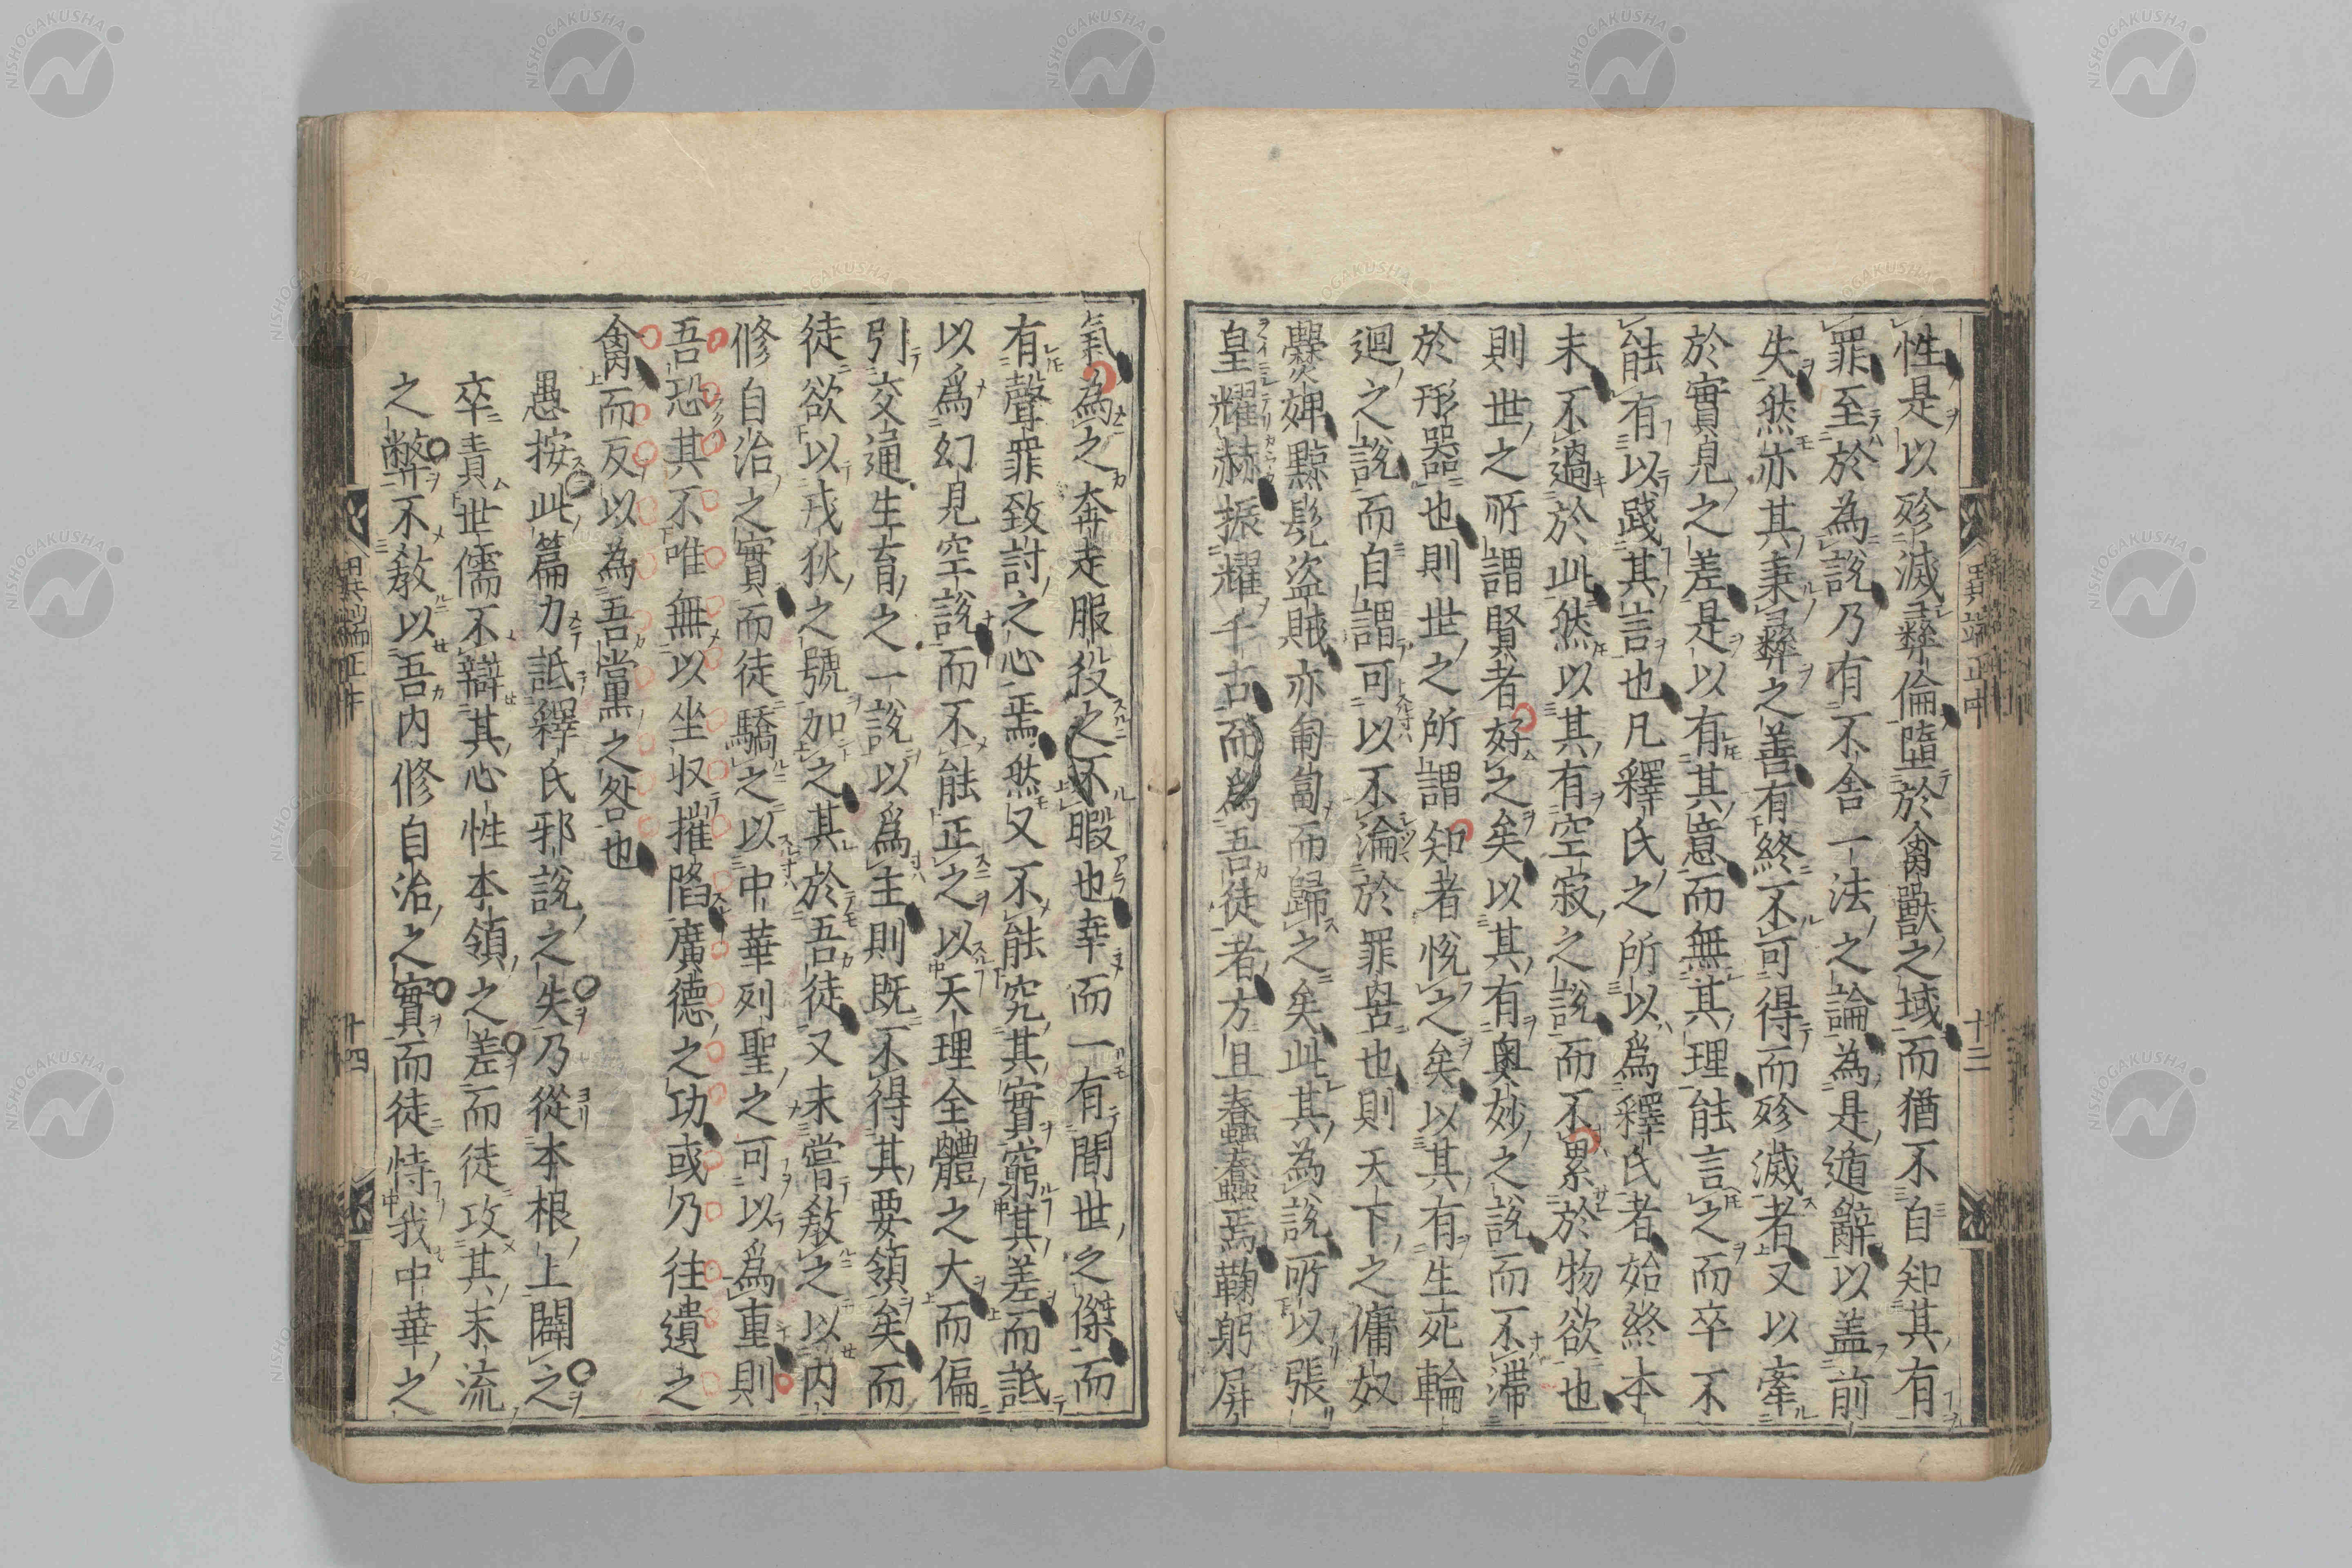 性是以殄滅彛倫墮於禽獸之域而猶不自知其有
罪至於為說乃有不舍一法之論為是遁辭以盖前
失然亦其秉彛之善有終不可得而殄滅者又以牽
於實見之差是以有其意而無其理能言之而卒不
能有以踐其言也凡釋氏之所以爲釋氏者始終本
末不過於此然以其有空寂之說而不累於物欲也
則世之所謂賢者好之矣以其有奥妙之說而不滯
於形器也則世之所謂知者悅之矣以其有生死輪
迴之說而自謂可以不淪於罪苦也則天下之傭奴
爨婢黥髡盗賊亦匍匐而歸之矣此其為說所以張
皇耀赫振耀千古而爲吾徒者方且蠢蠢焉鞠躬屏
氣為之奔走服役之不暇也幸而一有間世之傑而
有聲罪致討之心焉然又不能究其實窮其差而詆
以爲幻見空說而不能正之以天理全體之大而偏
引交通生育之一說以爲主則既不得其要領矣而
徒欲以戎狄之號加之其於吾徒又未嘗敎之以内
修自治之實而徒驕之以中華列聖之可以爲重則
吾恐其不唯無以坐収摧陷廣德之功或乃往遺之
禽而反以為吾黨之咎也
愚按此篇力詆釋氏邪說之失乃從本根上闢之
卒責世儒不辯其心性本領之差而徒攻其末流
之弊不敎以吾内修自治之實而徒恃我中華之
異端正中
十三
十四
NISHOGAKUSHA